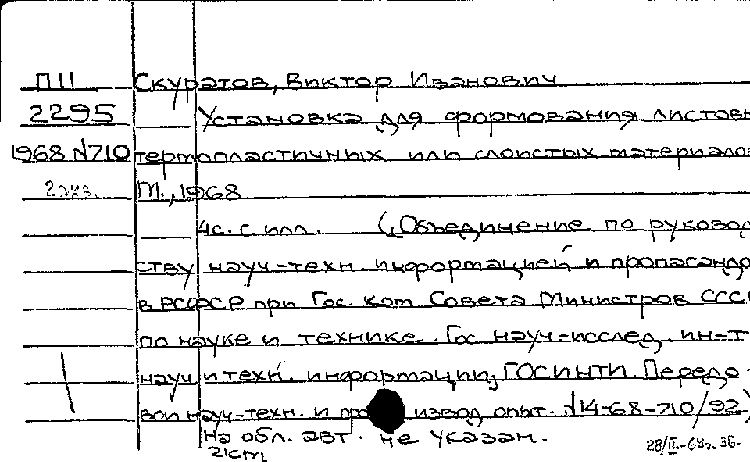 П11 Скуратов, Виктор Иванович
2295 Установка для формования листовы
1968 N710 термопластичных или слоистых материалов
2 экз. М., 1968
4с. с илл. (Объединение по руковод
ству науч-техн. информацией и пропагандо
в РСФСР при Гос. ком. Совета Министров ССС
по науке и технике. Гос. науч-исслед. ин-т
науч и техн. информации, ГОСИНТИ. Передо
вой науч-техн. и про извод. опыт. N14-68-710/92)
На обл. авт. не указан.
21cm 28/II-68г. 36-